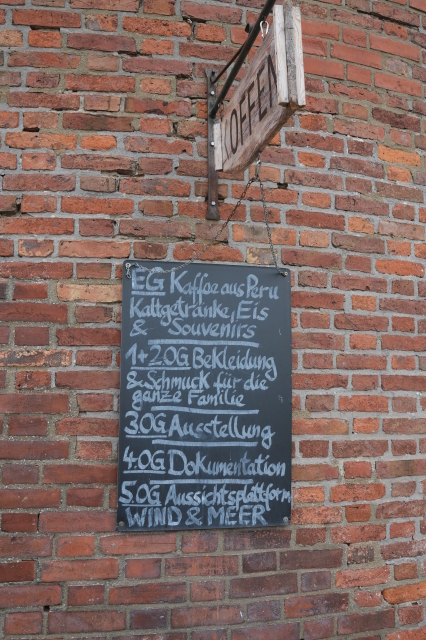 OFFEN
EG Kaffee aus Peru
Kaltgetränke, Eis
& Souvenirs
1+2.OG Bekleidung
& Schmuck für die
ganze Familie
3.OG Ausstellung
4.OG Dokumentation
5.OG Aussichtsplattform
WIND & MEER